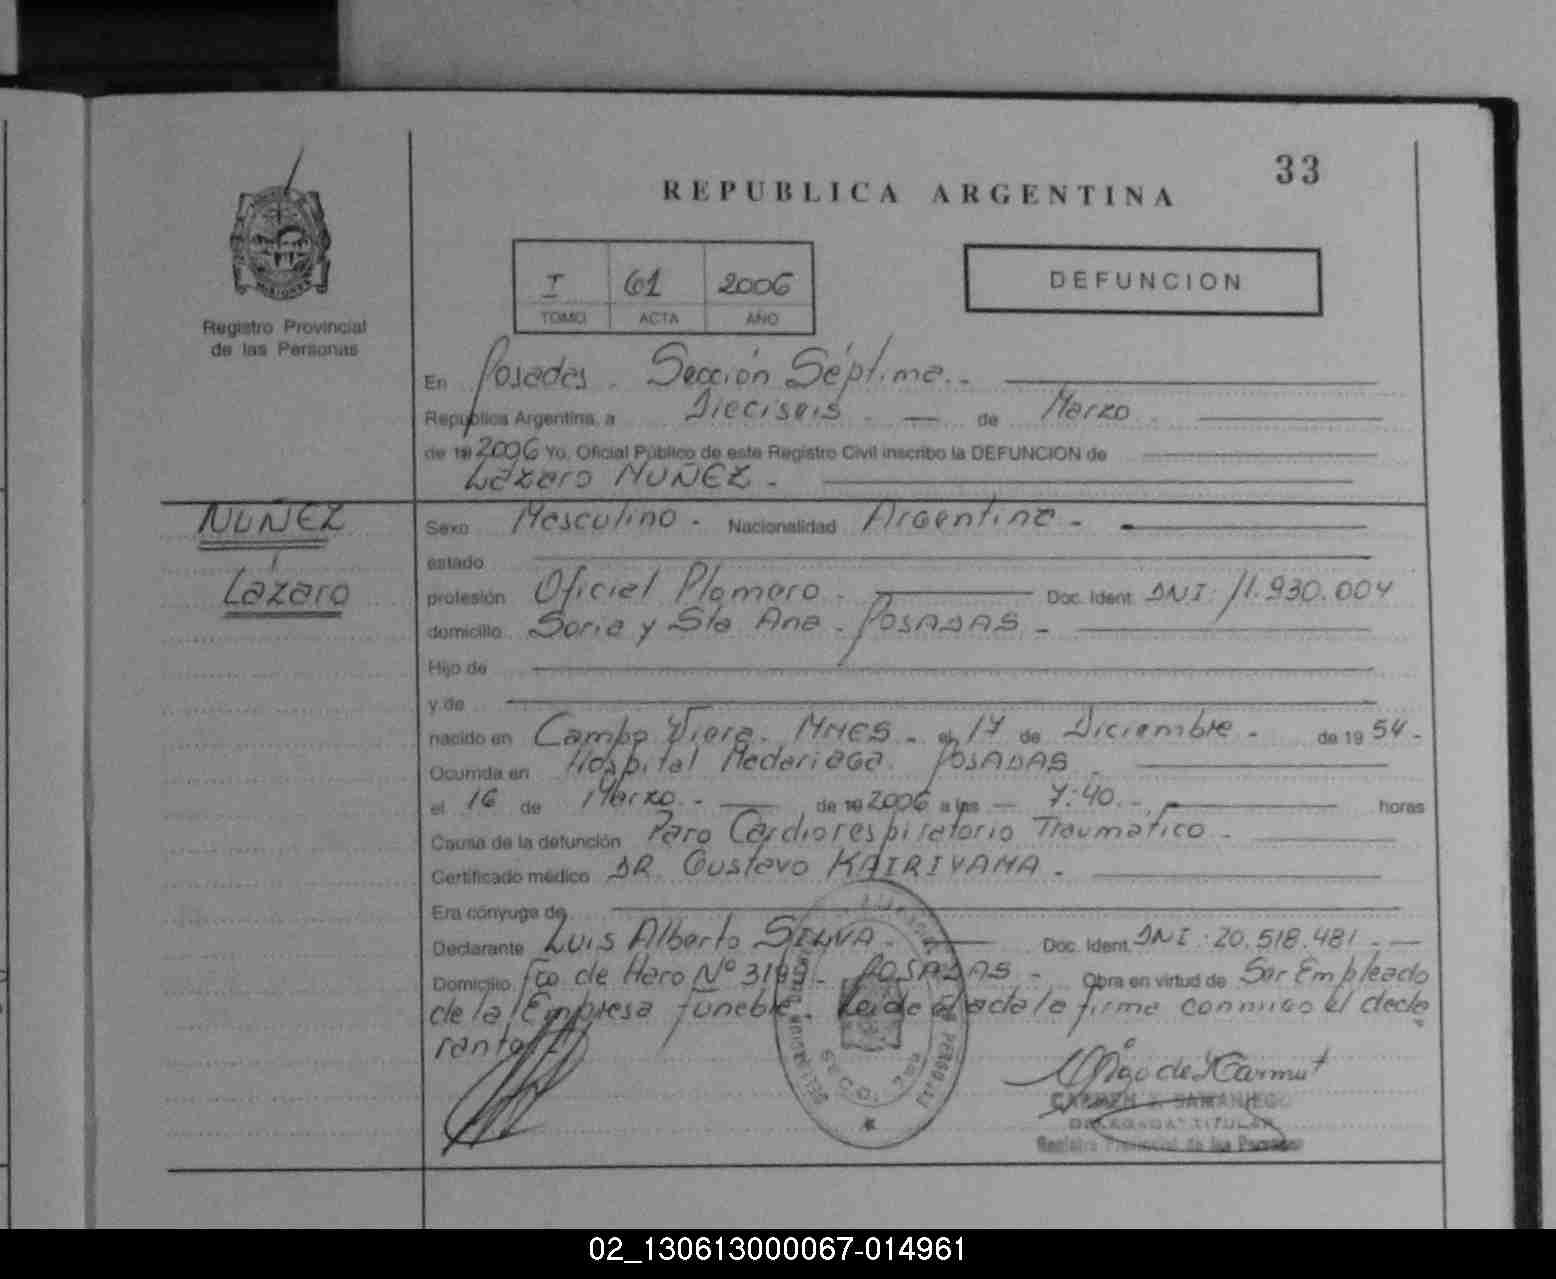 33
REPUBLICA ARGENTINA
MISIONES
Registro Provincial
de las Personas
I 61 2006
TOMO ACTA AÑO
DEFUNCION
En Posadas. Sección Séptima.-
Republica Argentina, a Dieciseis. - de Marzo.
de 19 2006 Yo, Oficial Público de este Registro Civil inscribo la DEFUNCION de
Lázaro NUÑEZ.-
NUÑEZ
Lázaro
Sexo Masculino.- Nacionalidad Argentina.-
estado
profesión Oficial Plomero. Doc. Ident. DNI: 11.930.004
domicilio Soria y Sta Ana. POSADAS.-
Hijo de
y de
nacido en Campo Viera. MNES.- el 17 de Diciembre.- de 19 54.-
Ocurrida en Hospital Madariaga. POSADAS.
el 16 de Marzo.- de 19 2006 a las - 7:40.- horas
Causa de la defunción Paro Cardiorespiratorio Traumatico.-
Certificado médico DR. Gustavo KAIRIYAMA.-
Era cónyuge de
Declarante Luis Alberto SILVA.- Doc. Ident. DNI: 20.518.481.-
Domicilio Fco de Haro Nº POSADAS.- Obra en virtud de Ser Empleado
de la Empresa funebre. Leída el acta la firma conmigo el decla
rante
CARMEN SAMANIEGO
DELEGADA TITULAR
Registro Provincial de las Personas
02_130613000067-014961